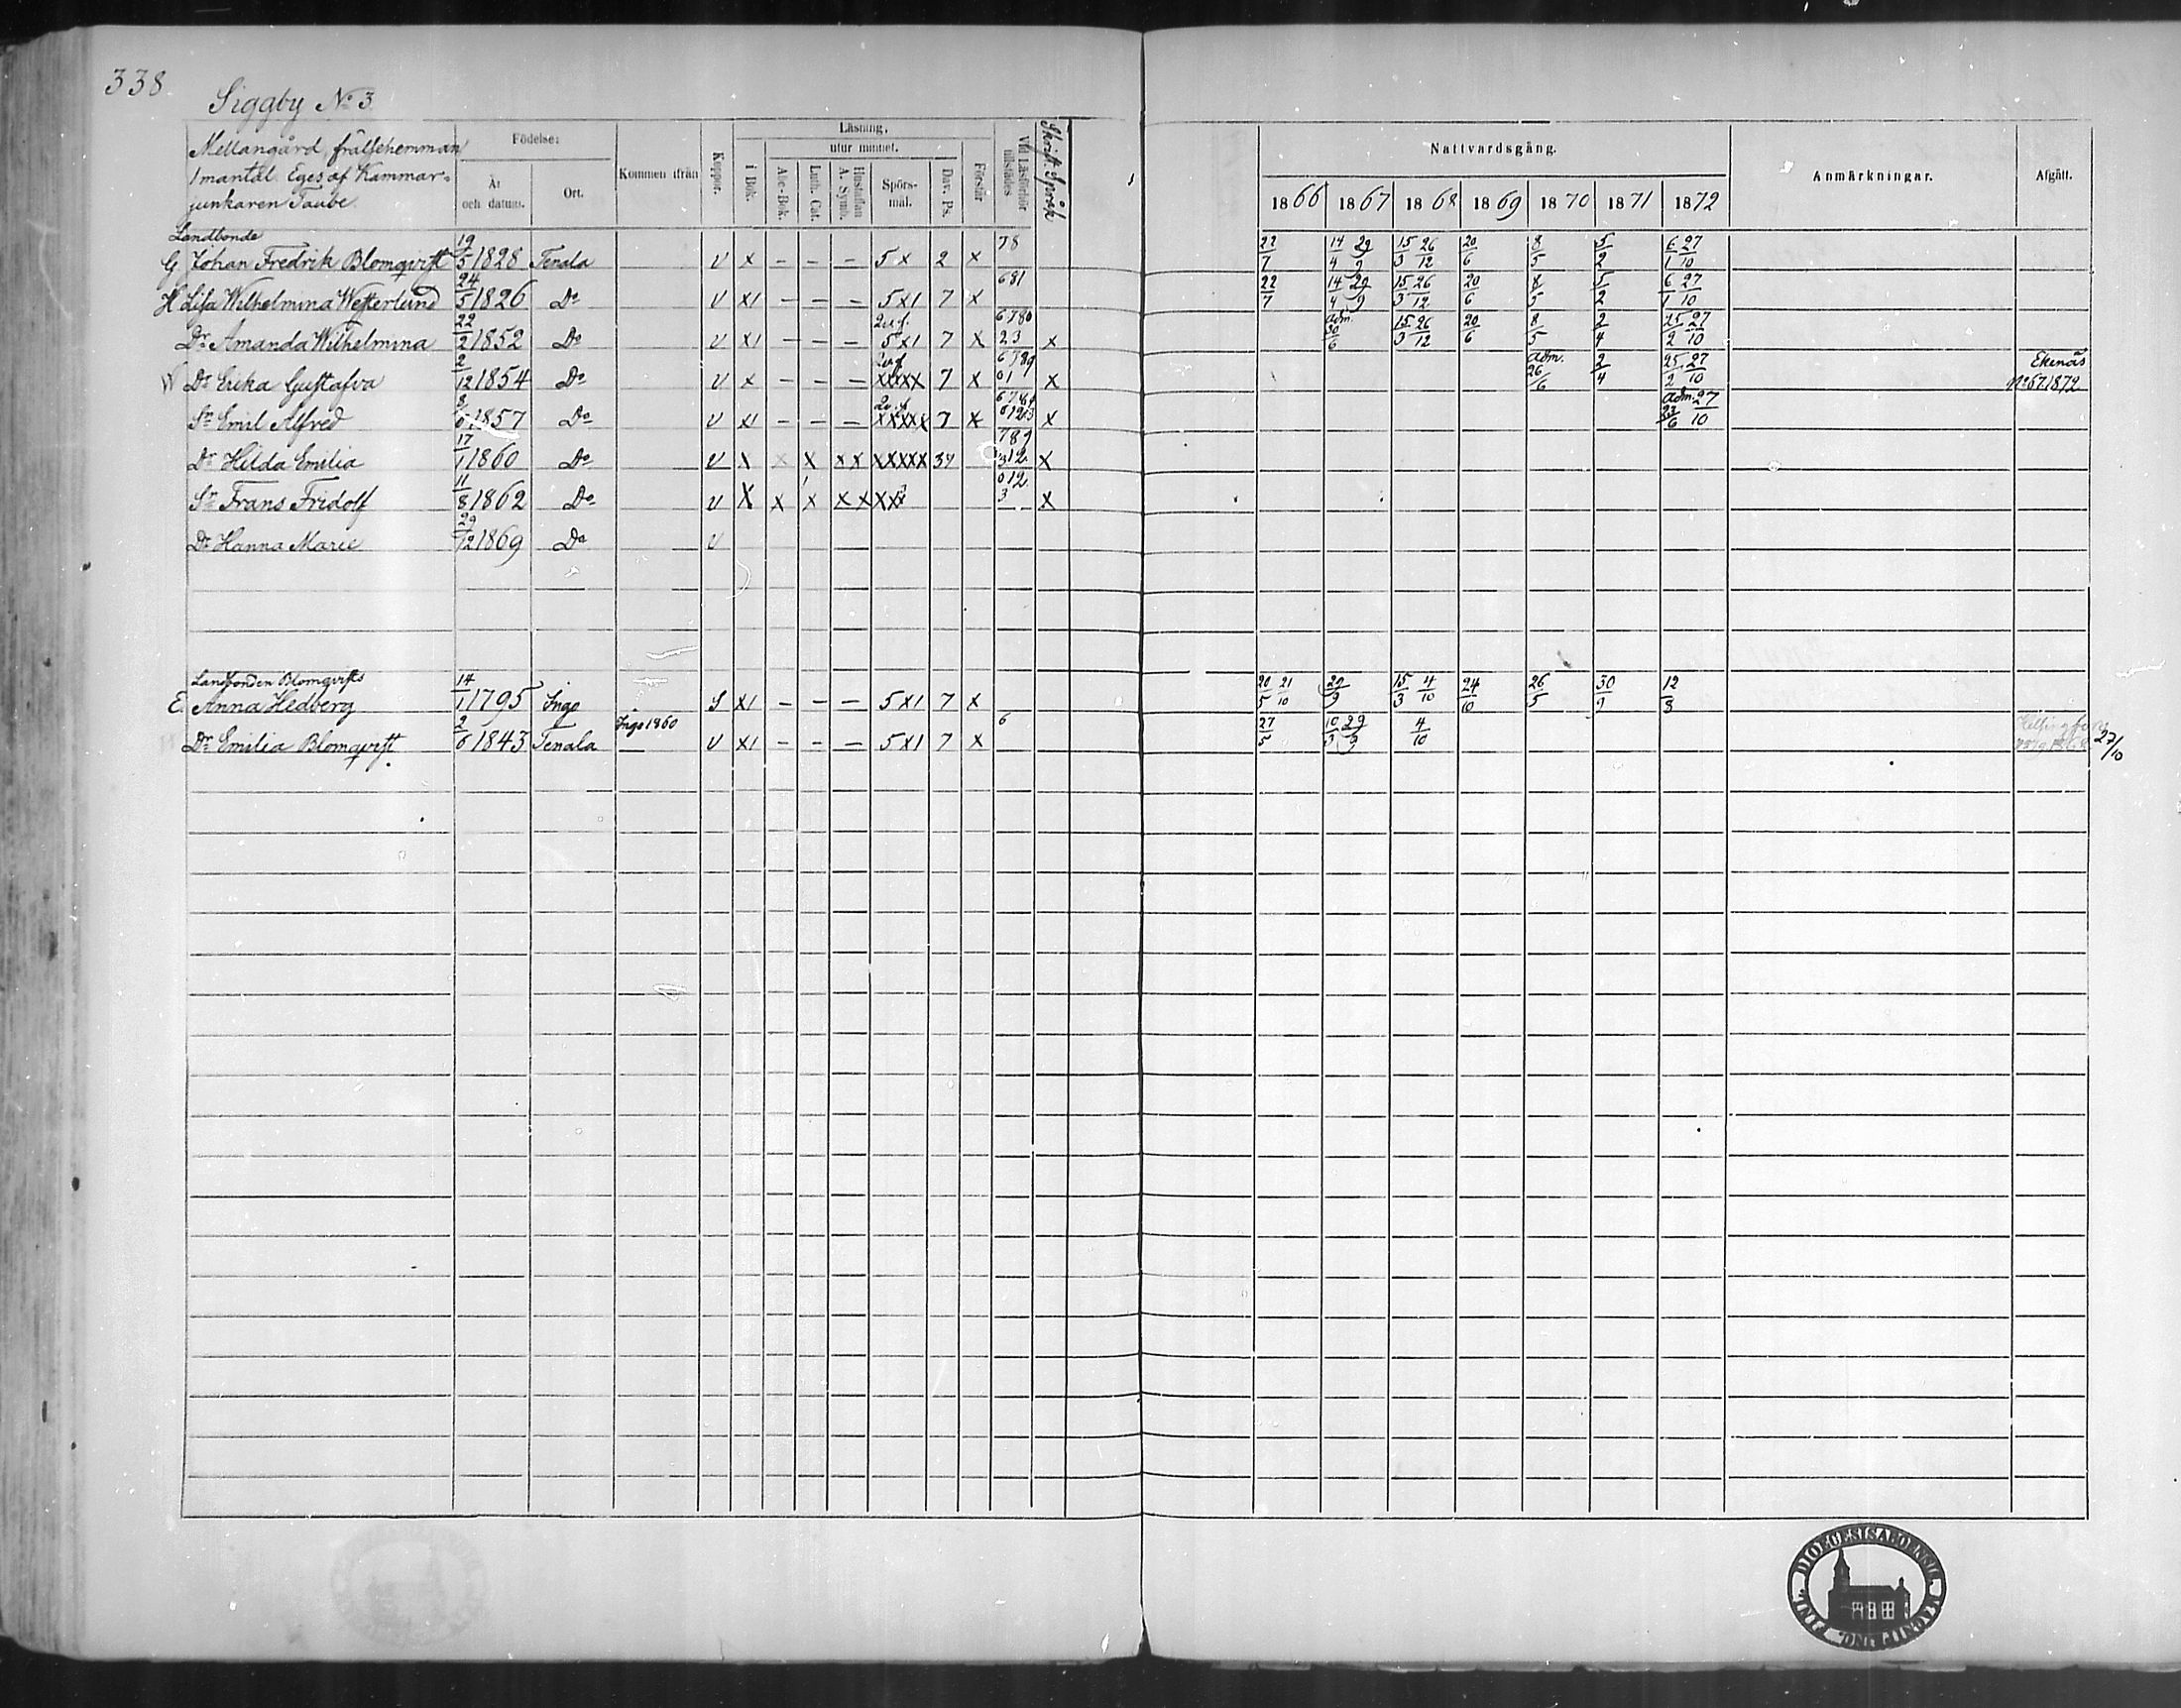 338
Siggby No 3
Mellangård, frälsehemman
1 mantal. Eges af Kammar-
junkaren Taube.
Födelse:
År och datum.
Ort.
Kommen ifrån
Koppor.
Läsning,
utur minnet.
i Bok.
Abc-Bok.
Luth. Cat.
Hustaflan A. Symb.
Spörs-mål.
Dav. Ps.
Förstår
Vid Läsförhör tillstädes
Nattvardsgång.
1866 1867 1868 1869 1870 1871 1872
Anmärkningar.
Afgått.
Landbonde 78
G Johan Fredrik Blomqvist 19/5 1828 Tenala v x - - - 5 x 2 x 22/7 14/4 29/9 15/3 26/12 20/6 8/5 5/2 6/1 27/10
681
H Lisa Wilhelmina Westerlund 24/5 1826 Do v x1 - - - 5x1 7 x 22/7 14/4 29/9 15/3 26/12 20/6 8/5 5/2 6/1 27/10
6780
Dr Amanda Wilhelmina 22/2 1852 Do v x1 - - - 5x1 7 x 23 x adm. 30/6 15/3 26/12 20/6 8/5 2/4 25/2 27/10
6789
Dr Erika Gustafva 2/12 1854 Do v x - - - xxxxx 7 x 01 x adm. 26/6 2/4 25/2 27/10 Ekenäs No 67 1872
Sn Emil Alfred 1857 Do v x1 - - - xxxxx 7 x x adm. 23/6 27/10
789
Dr Hilda Emilia 17/1 1860 Do v x x x x x xxxxx 34 312 x
012
Sn Frans Fridolf 11/8 1862 Do v x x x x x xx 3 x
Dr Hanna Marie 29/12 1869 Do v
Landbonden Blomqvists
E. Anna Hedberg 14/1 1795 Ingo S x1 - - - 5x1 7 x 20/5 21/10 29/9 15/3 4/10 24/10 26/5 30/9 12/3
Ingo 1860 6
Dr Emilia Blomqvist 2/6 1843 Tenala v x1 - - - 5x1 7 x 27/5 10/3 29/9 4/10 27/10